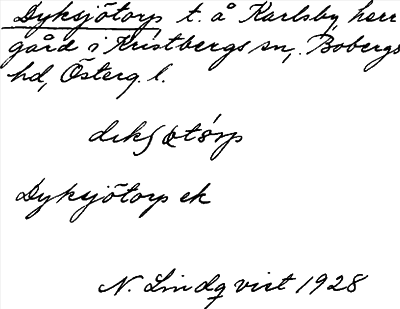 Dyksjötorp t. å Karlsby, herr
gård i Kristbergs sn, Bobergs
hd, Österg. l.
Dyksjötorp ek
N. Lindqvist 1928